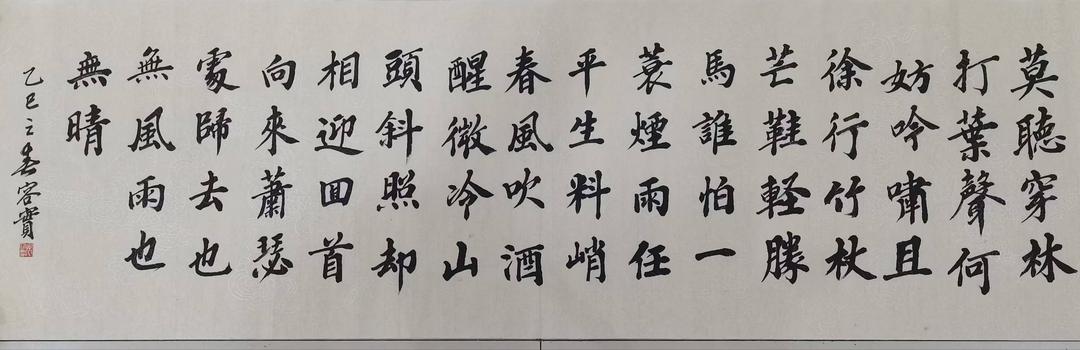 莫聽穿林
打葉聲何
妨吟嘯且
徐行竹杖
芒鞋軽勝
馬誰怕一
蓑煙雨任
平生料峭
春風吹酒
醒微冷山
頭斜照却
相迎回首
向來蕭瑟
處歸去也
無風雨也
無晴
乙巳立春容寶